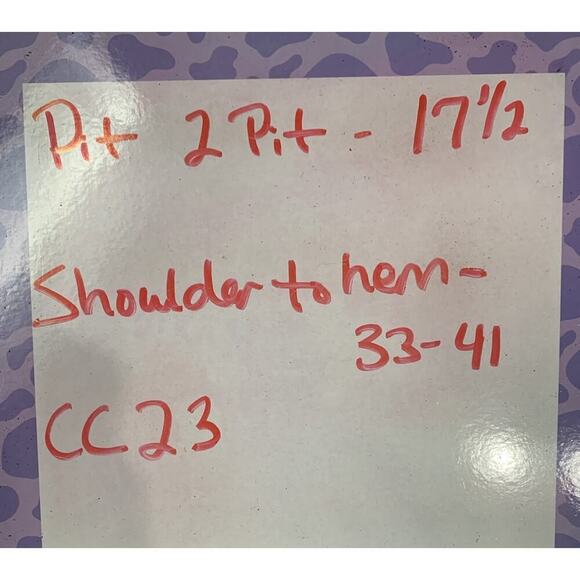 Pit 2 Pit - 17 1/2
Shoulder to hem -
33-41
CC23